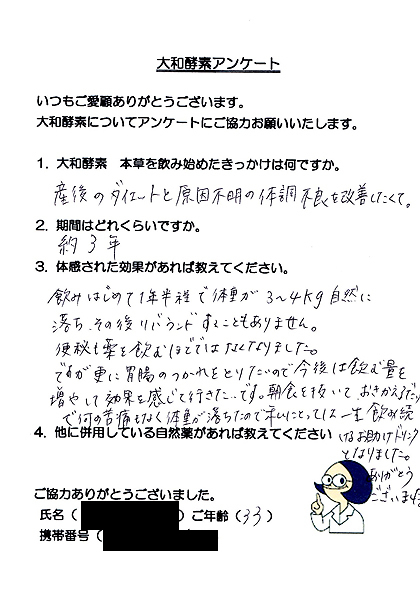 大和酵素アンケート
いつもご愛顧ありがとうございます。
大和酵素についてアンケートにご協力お願いいたします。
1. 大和酵素 本草を飲み始めたきっかけは何ですか。
産後のダイエットと原因不明の体調不良を改善したくて。
2. 期間はどれくらいですか。
約3年
3. 体感された効果があれば教えてください。
飲みはじめて1年半程で体重が3～4kg自然に
落ち、その後リバウンドすることもありません。
便秘も薬を飲むほどではなくなりました。
ですが更に胃腸のつかれをとりたいので今後は飲む量を
増やして効果を感じて行きたいです。朝食を抜いて、おきかえるだけ
で何の苦痛もなく体重が落ちたので私にとっては一生飲み続
けるお助けドリンク
となりました。
ありがとう
ございます
4. 他に併用している自然薬があれば教えてください
ご協力ありがとうございました。
氏名( )ご年齢(33)
携帯番号(